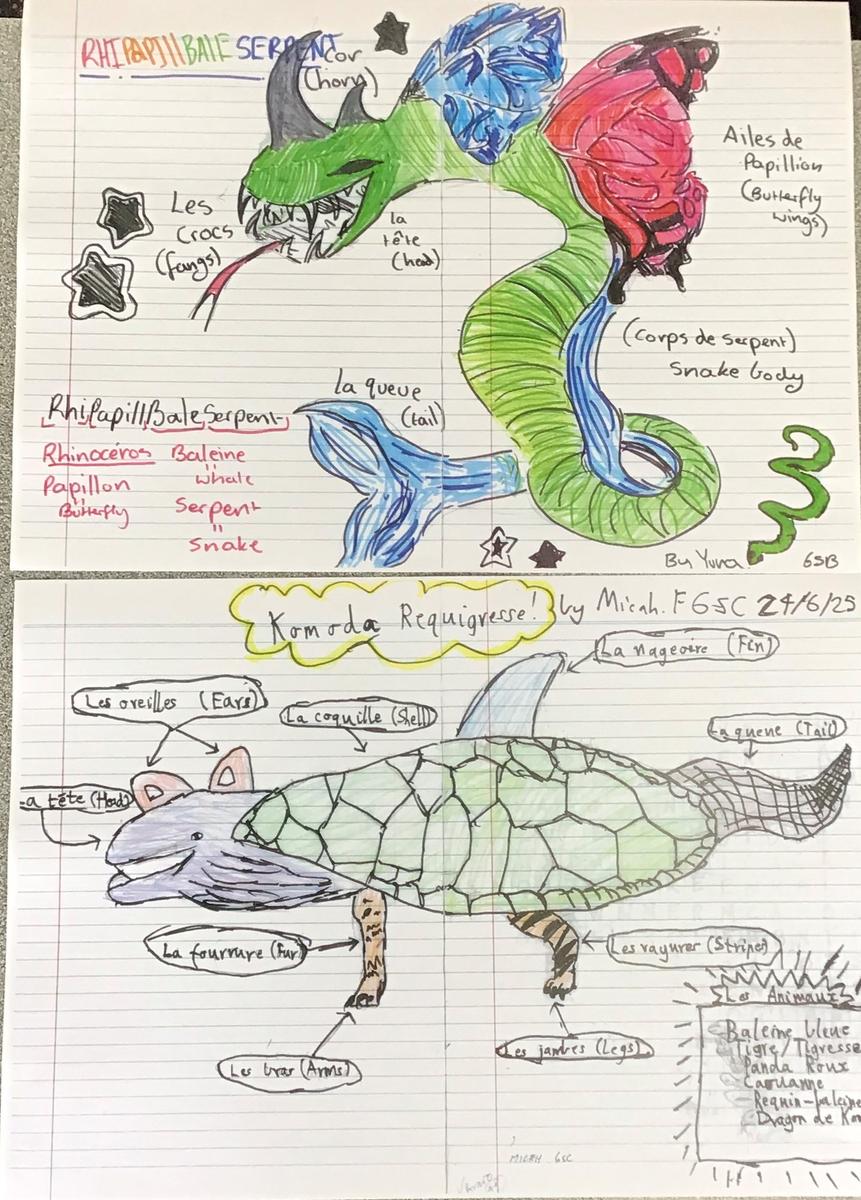 RHIPAPILLBALESERPENT
cor
(horn)
Ailes de
Papillion
(Butterfly
wings)
Les
Crocs
(fangs)
la
tête
(head)
(Corps de serpent)
Snake body
la queue
(tail)
RhiPapillBaleSerpent
Rhinocéros
Papillon
"
Butterfly
Baleine
"
whale
Serpent
"
Snake
By Yuna!
6SB
Komoda Requigresse! by Micah. F 6SC 24/6/25
La nageoire (Fin)
Les oreilles (Ears)
La coquille (Shell)
La queue (Tail)
La tête (Head)
La fourrure (Fur)
Les rayures (Stripes)
Les bras (Arms)
Les jambes (Legs)
Les Animaux
Baleine bleue
Tigre/Tigresse
Panda Roux
Caouanne
Requin-baleine
Dragon de Ko
MICAH 6SC